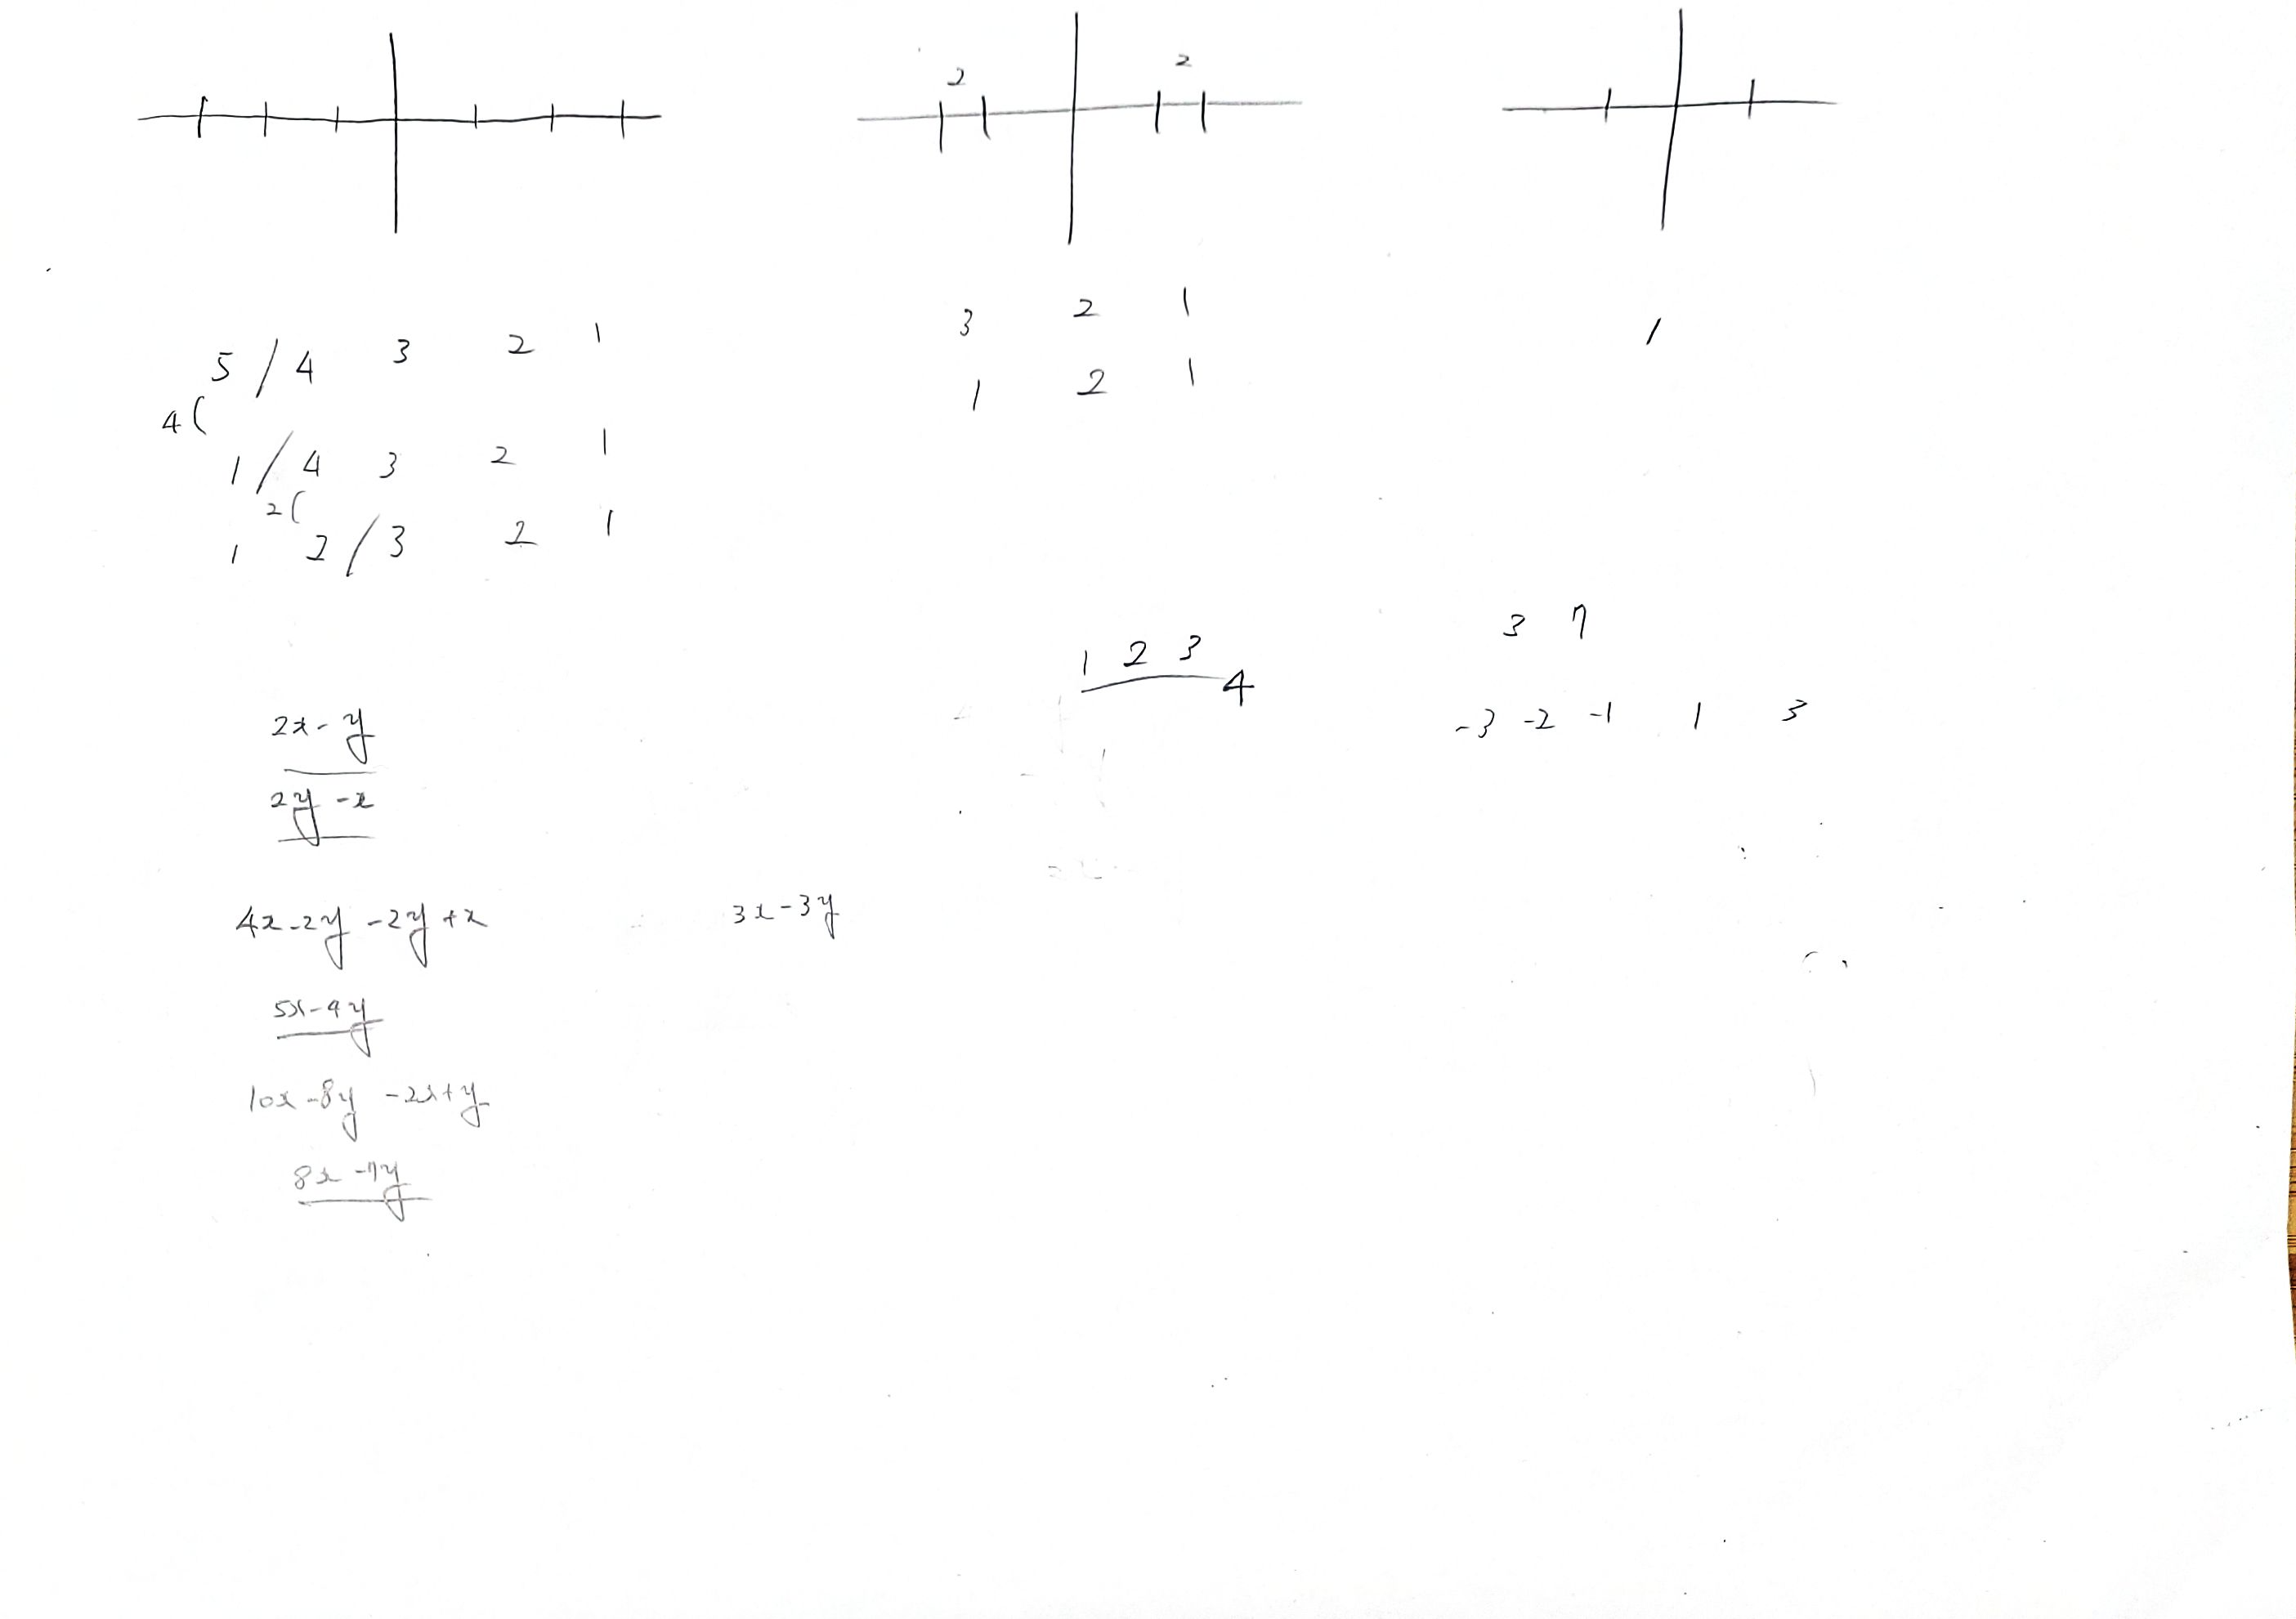 2 2
3 2 1
5 / 4 3 2 1
1
1 2 1
4(
1 / 4 3 2 1
2(
1 2 / 3 2 1
3 7
1 2 3
4
-3 -2 -1 1 3
2x-y
2y-x
4x-2y-2y+x
3x-3y
5x-4y
10x-8y-2x+y
8x-7y